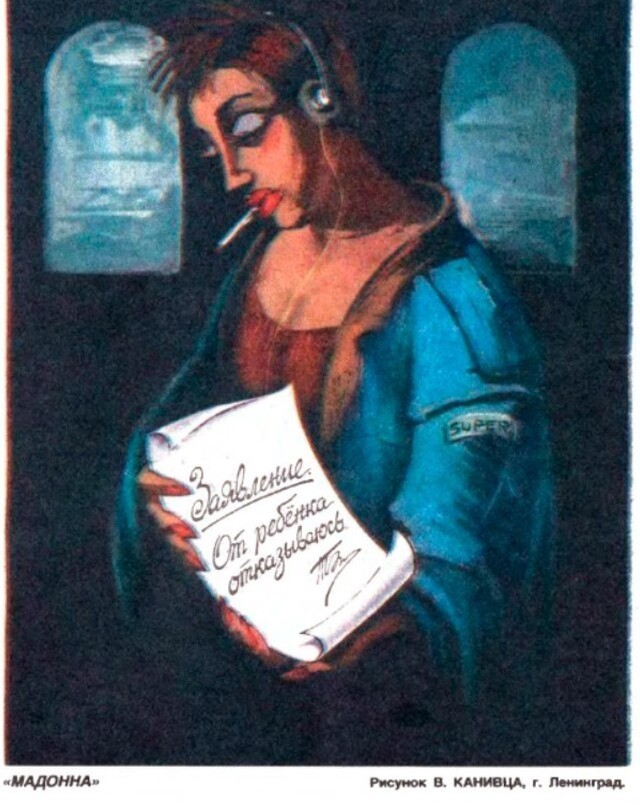 SUPER
Заявление.
От ребёнка
отказываюсь
«МАДОННА»
Рисунок В. КАНИВЦА, г. Ленинград.